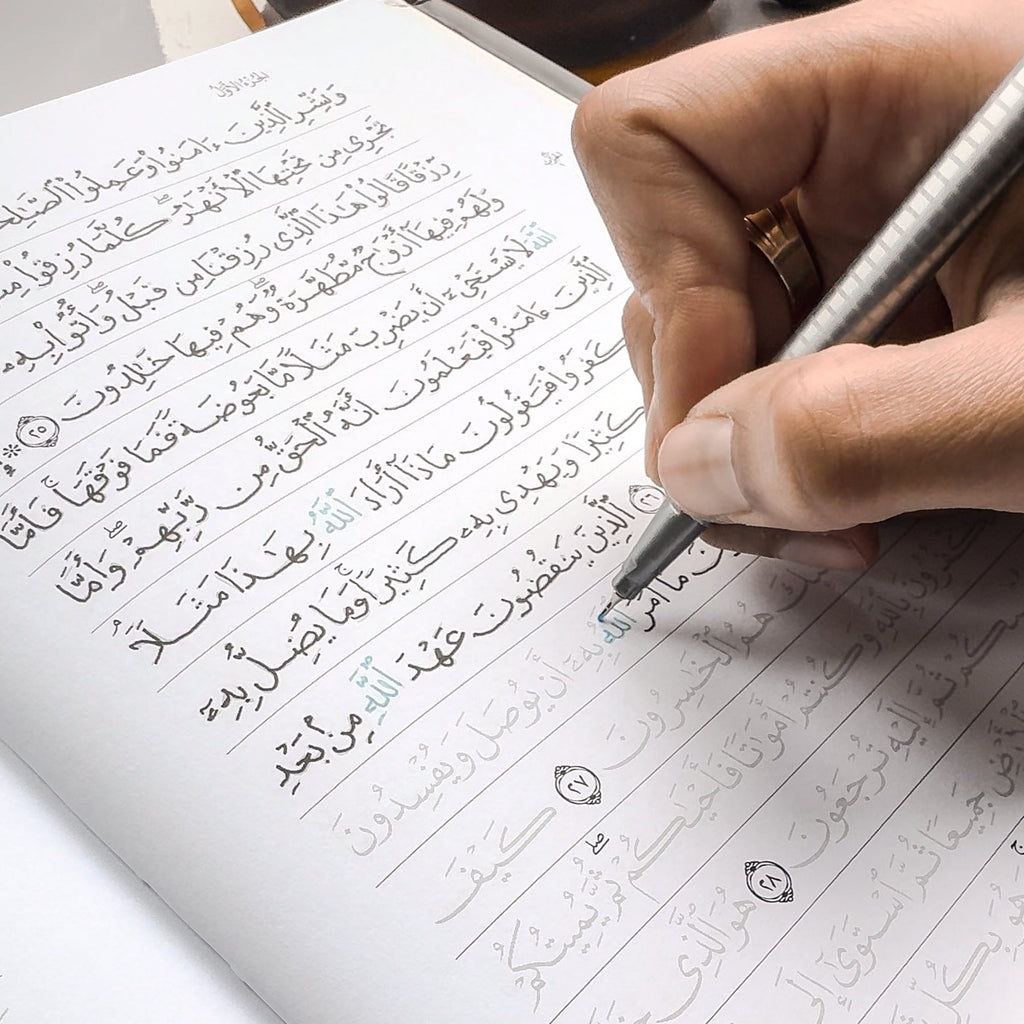 الجزء الأول
وَبَشِّرِ ٱلَّذِينَ ءَامَنُوا۟ وَعَمِلُوا۟
تَجْرِى مِن تَحْتِهَا ٱلْأَنْهَٰرُ ۖ كُلَّمَا رُزِقُوا۟
رِّزْقًا ۙ قَالُوا۟ هَٰذَا ٱلَّذِى رُزِقْنَا مِن قَبْلُ ۖ وَأُتُوا۟ بِهِۦ
وَلَهُمْ فِيهَآ أَزْوَٰجٌ مُّطَهَّرَةٌ ۖ وَهُمْ فِيهَا خَٰلِدُونَ ٢٥ *
ٱللَّهَ لَا يَسْتَحْىِۦٓ أَن يَضْرِبَ مَثَلًا مَّا بَعُوضَةً فَمَا فَوْقَهَا ۚ فَأَمَّا
ٱلَّذِينَ ءَامَنُوا۟ فَيَعْلَمُونَ أَنَّهُ ٱلْحَقُّ مِن رَّبِّهِمْ ۖ وَأَمَّا
كَفَرُوا۟ فَيَقُولُونَ مَاذَآ أَرَادَ ٱللَّهُ بِهَٰذَا مَثَلًا ۘ
كَثِيرًا وَيَهْدِى بِهِۦ كَثِيرًا ۚ وَمَا يُضِلُّ بِهِۦٓ
٢٦ ٱلَّذِينَ يَنقُضُونَ عَهْدَ ٱللَّهِ مِنۢ بَعْدِ
مَآ أَمَرَ ٱللَّهُ بِهِۦٓ أَن يُوصَلَ وَيُفْسِدُونَ
هُمُ ٱلْخَٰسِرُونَ ٢٧ كَيْفَ
تَكْفُرُونَ بِٱللَّهِ وَكُنتُمْ أَمْوَٰتًا فَأَحْيَٰكُمْ ۖ ثُمَّ يُمِيتُكُمْ
ثُمَّ إِلَيْهِ تُرْجَعُونَ ٢٨ هُوَ ٱلَّذِى
جَمِيعًا ثُمَّ ٱسْتَوَىٰٓ إِلَى